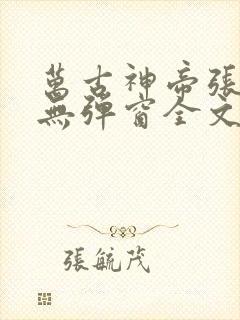 萬古神帝張
無彈窗全文
張毓茂